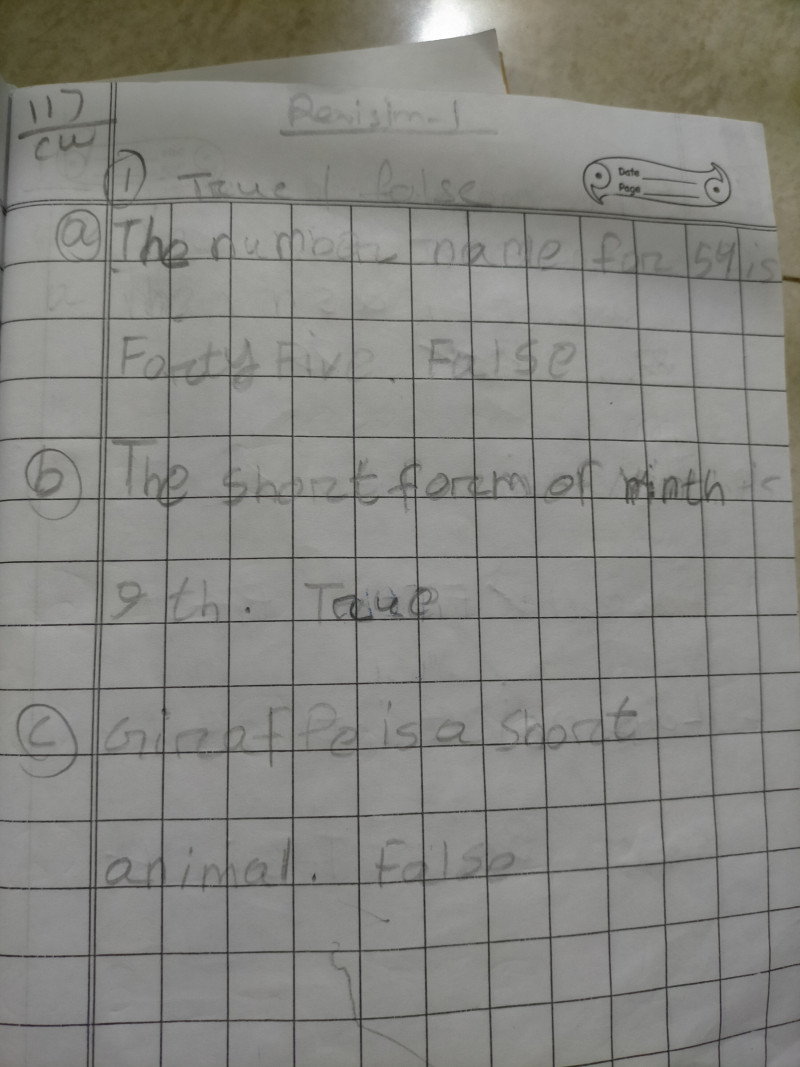 117
CW
Revision-1
① True / false
Date
Page
ⓐ The number name for 54 is
Forty Five. False
ⓑ The short form of ninth is
9th. True
ⓒ Giraffe is a short
animal. False